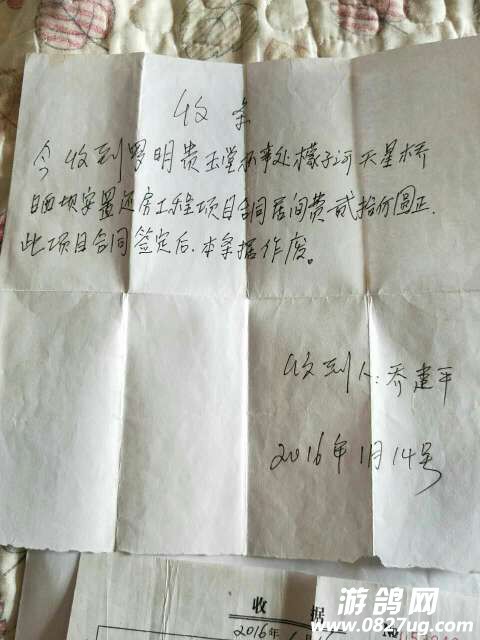 收条
今收到罗明贵玉堂办事处檬子河天星桥
晒坝安置还房工程项目合同居间费贰拾万圆正.
此项目合同签定后.本条据作废。
收到人:乔建平
2016年1月14号
收据
2016年
游鸽网
www.0827ug.com